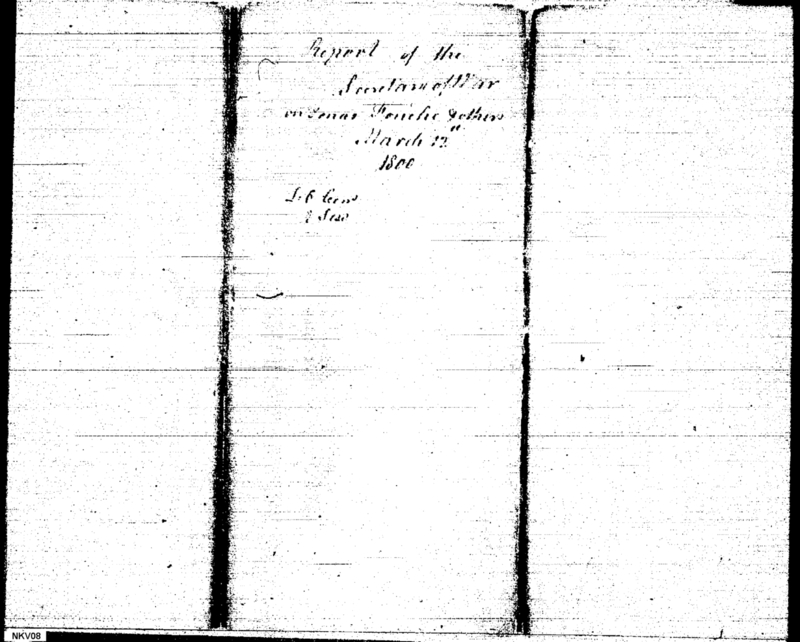 Report of the
Secretary of War
on Jonas Fouche & others
March 12th
1800
6 Con
Sess
NKV08